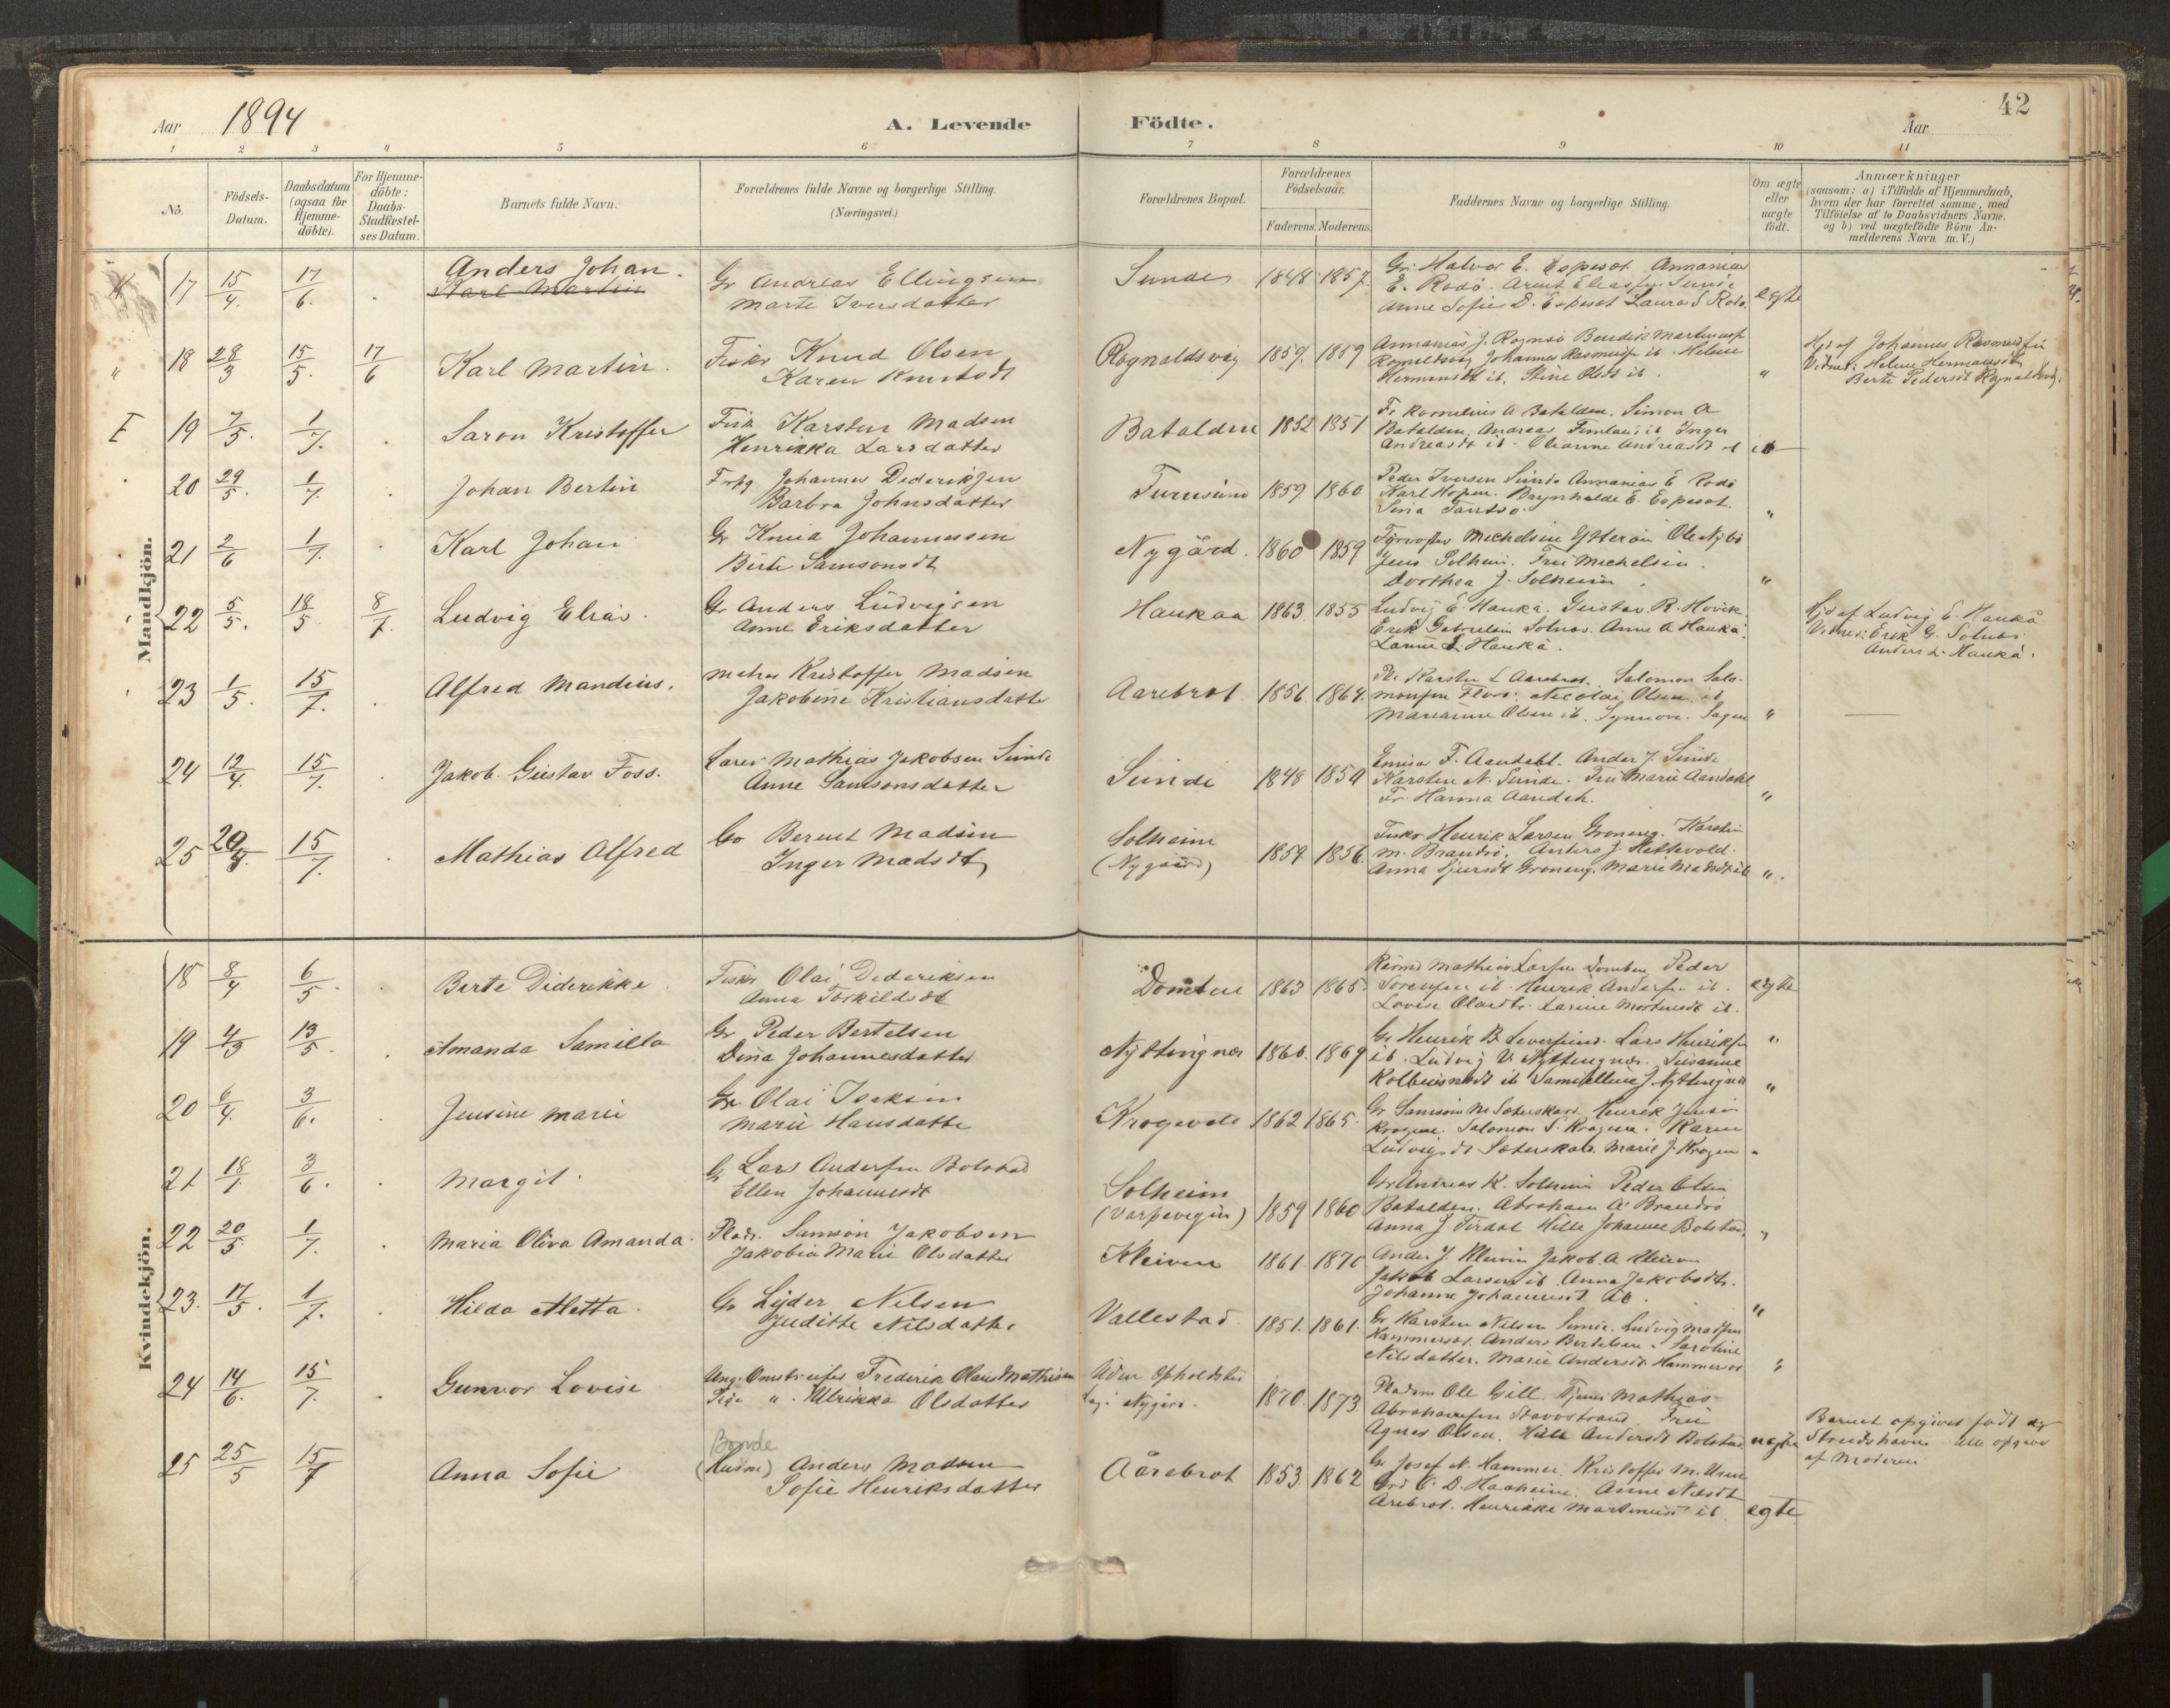 42
Aar 1894
A. Levende
Födte.
Aar
1 2 3 4 5 6 7 8 9 10 11
No.
Födsels-
Datum.
Daabsdatum
(ogsaa for
Hjemme-
döbte).
For Hjemme-
döbte:
Daabs-
Stadfæstel-
ses Datum.
Barnets fulde Navn.
Forældrenes fulde Navne og borgerlige Stilling.
(Næringsvei.)
Forældrenes Bopæl.
Forældrenes
Födselsaar.
Faderens. Moderens.
Faddernes Navne og borgerlige Stilling.
Om ægte
eller
uægte
födt.
Anmærkninger
(saasom: a) i Tilfælde af Hjemmedaab,
hvem der har forrettet samme, med
Tilföielse af to Daabsvidners Navne.
og b) ved uægtefödte Börn An-
melderens Navn m. V.)
Mandkjön.
17 15/4. 17/6. Anders Johan.
Karl Martin
Gr Andreas Ellingsen
Marte Iversdatter
Sunde 1848 1857.
Gr. Halvor E. Espeset Annanias
E. Rodö. Arent Eliassen Sunde
Anne Sofie D. Espeset Laura S Rodö.
egte
18 28/3 15/5. 17/6 Karl Martin.
Fisker Knud Olsen
Karen Knutsdt
Rognaldsvåg 1859. 1859
Annanias J. Rognsø Bendik Martinusf
Rognaldsvåg Johannes Rasmusf ib. Helene
Hermansdt ib. Stine Olsdt ib.
"
Hjd af Johannes Rasmussen
Vidner: Helene Hermansdt
Berte Pedersdt Rognaldsvåg.
19 7/5. 1/7. Saron Kristoffer
Fisk Karsten Madsen
Henrikka Larsdatter
Batalden 1852 1851
Fr Kornelius A Batalden. Simon A
Batalden, Andreas ib Inger
Andreasdt ib. Oleanne Andreasdt
20 29/5. 1/7. Johan Bertin
Johannes Dideriksen
Barbra Johnsdatter
Furusund 1859 1860
Peder Iversen Sunde Annanias E Rodö
Karl Hopen. Brynhilde E. Espeset.
"
21 2/6 1/7. Karl Johan
Gr Knud Johannessen
Berte Samsonsdt
Nygård. 1860 1859
Michelsen Ytterøen Ole Nybö
Jens Solheim. Fru Michelsen.
Dorthea J. Solheim.
"
22 5/5. 18/5 8/7. Ludvig Elias.
Gr Anders Ludvigsen
Anne Eriksdatter
Haukaa 1863 1855
Ludvig E. Haukå. Gustav. R. Hovik
Erik Gabrielsen Solnæs. Anne A Haukå.
Haukå.
Hjd af Ludvig E. Haukå
Vidner: Erik G. Solnæs
Anders L. Haukå.
23 1/5. 15/7. Alfred Mandius.
Kristoffer Madsen
Jakobine Kristiansdatter
Aarebrot 1856 1864.
Karsten L Aarebrot. Salomon Salo-
monsen Florö. Nicolai Olsen ib
Marianne Olsen ib. Synnøve. Sagen
"
24 12/4. 15/7. Jakob Gustav Foss.
Lærer Mathias Jakobsen Sunde
Anne Samsonsdatter
Sunde 1848 1859
F. Aandahl. Anders J. Sunde
Karsten N. Sunde. Fru Marie Aandahl
Fr. Hanna Aandah.
"
25 15/7. Mathias Alfred
Gr Bernt Madsen
Inger Madsdt
Solheim
(Nygaard)
1859 1856
Fisker Henrik Larsen Groneng. Karsten
M. Brandsö. Anders J. Hettevold.
Anna Sjursdt Groneng. Marie Madsdt ib
"
Kvindekjön.
18 8/4 6/5. Berte Diderikke.
Fisker Olai Dideriksen
Anna Torkildsdt
Domben 1863 1865.
Mathias Larsen Domben Peder
Sorensen ib. Henrik Andersen ib.
Lovise Olaidt. Larine Mortensdt ib.
egte
19 4/3 13/5. Amanda Samilla
Gr Peder Bertelsen
Dina Johannesdatter
Nyttingnæs 1860. 1869
Gr Henrik B. Leversund. Lars Henriksen
ib. Ludvig V. Nyttingnæs. Susanne
Kolbeinsdt ib Samielline J. Nyttingnæs
"
20 6/4. 3/6. Jensine Marie
Gr Olai Isaksen
Marie Hansdatter
Krogevold 1862 1865.
Gr Samson M Sæterskar. Henrik Jensen
Krogen. Salomon S. Krogen. Karen
Ludvigsdt Sæterskar. Marie J. Krogen
"
21 18/1. 3/6. Margit.
Gr Lars Andersen Bolstad
Ellen Johannesdt
Solheim
(Varpevegen)
1859 1860
Gr Andreas K. Solheim Peder Olsen
Batalden. Abraham A. Brandsö
Anna J. Tirdal Hille Johanne Bolstad,
22 20/5. 1/7. Maria Oliva Amanda.
Plads. Samson Jakobsen
Jakobia Marie Olsdatter
Kleiven 1861. 1870
Anders J. Kleiven Jakob. A Kleiven
Jakob Larsen ib Anna Jakobsdt.
Johanne Johannesdt ib.
"
23. 17/5. 1/7. Hilda Aletta.
Gr Lyder Nilsen
Juditte Nilsdatter
Vallestad. 1851. 1861.
Gr Karsten Nilsen Sunde. Ludvig Madsen
Hammersæt. Anders Bertelsen. Saroline
Nilsdatter. Marie Andersdt Hammerset
"
24 14/6. 15/7. Gunvor Lovise
Ung. Omstreifer Frederik Olaus Mathisen
Pige " Ulrikka Olsdatter
Uden Opholdsted
Nygård.
1870. 1873.
Pladsm Ole Gill. Tjener Mathias
Abrahamsen Stavøstrand. Fru
Agnes Olsen. Hille Andersdt Bolstad
uegte
Barnet opgives født
alle opgaver
af Moderen
25 25/5 15/7 Anna Sofie
Bonde
(Husm) Anders Madsen
Sofie Henriksdatter
Aårebrot 1853 1862
Gr Josef N. Hammer. Kristoffer M.
D. Haaheim. Anne Nilsdt
Arebrot. Henrikke Martinusdt ib.
egte